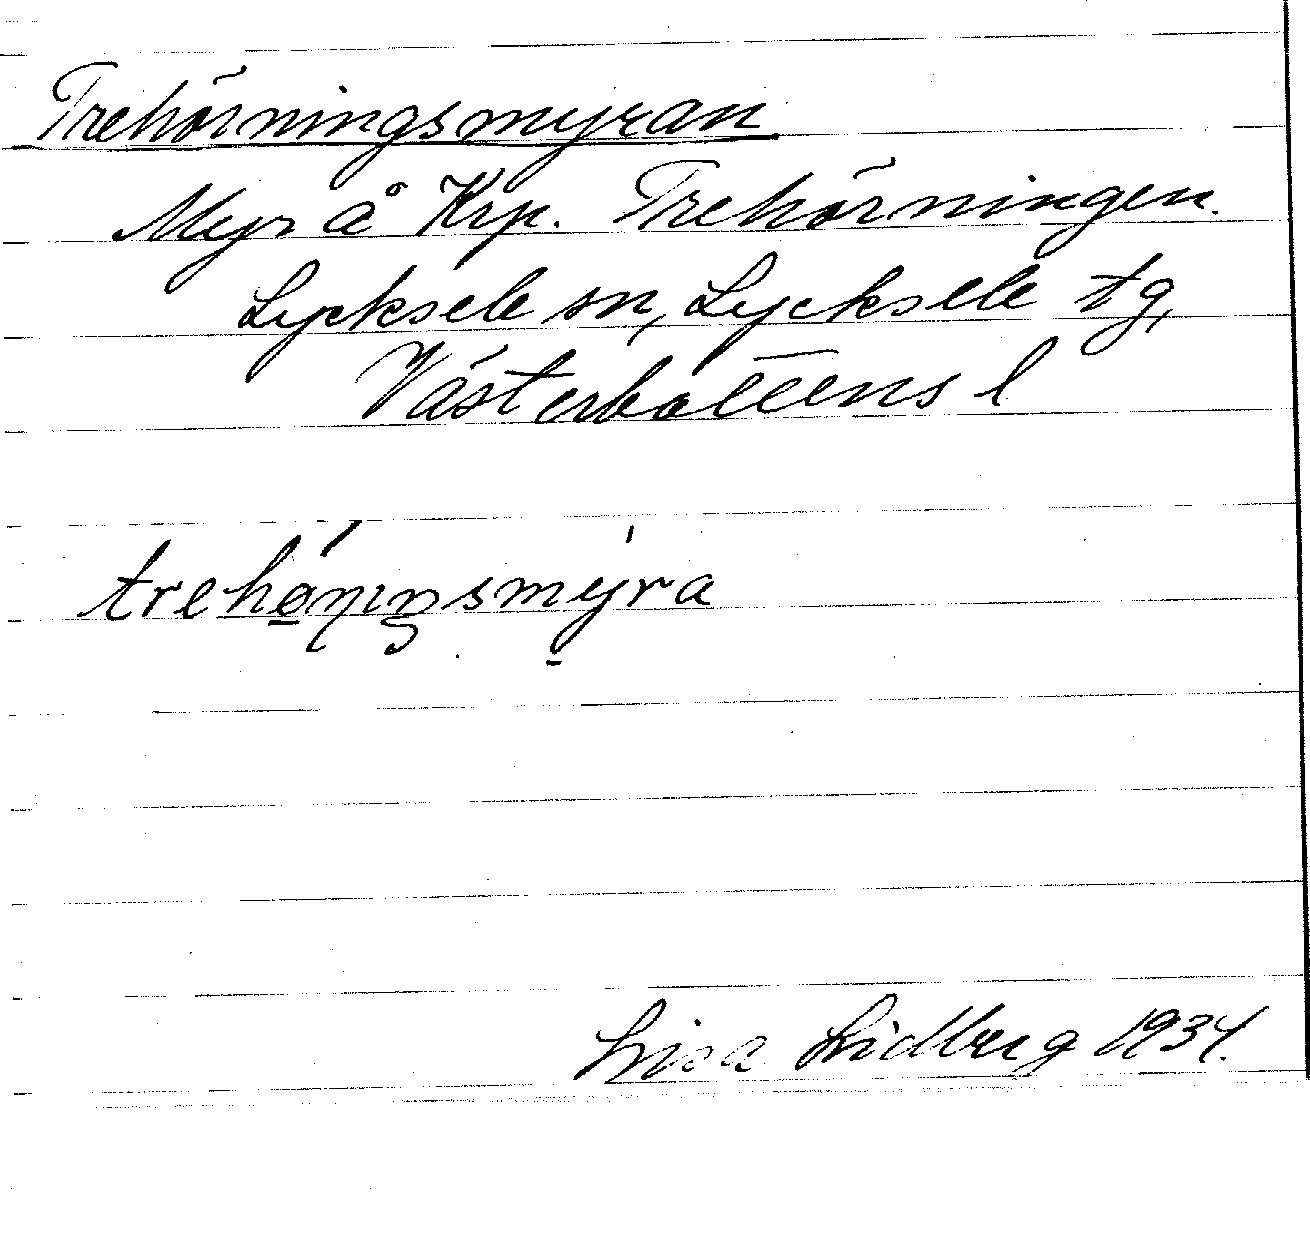 Trehörningsmyran
Myr å Krp. Trehörningen.
Lycksele sn, Lycksele tg,
Västerbottens l
trehø̱ɳıŋsmy̱ra
Lisa Lidberg 1934.